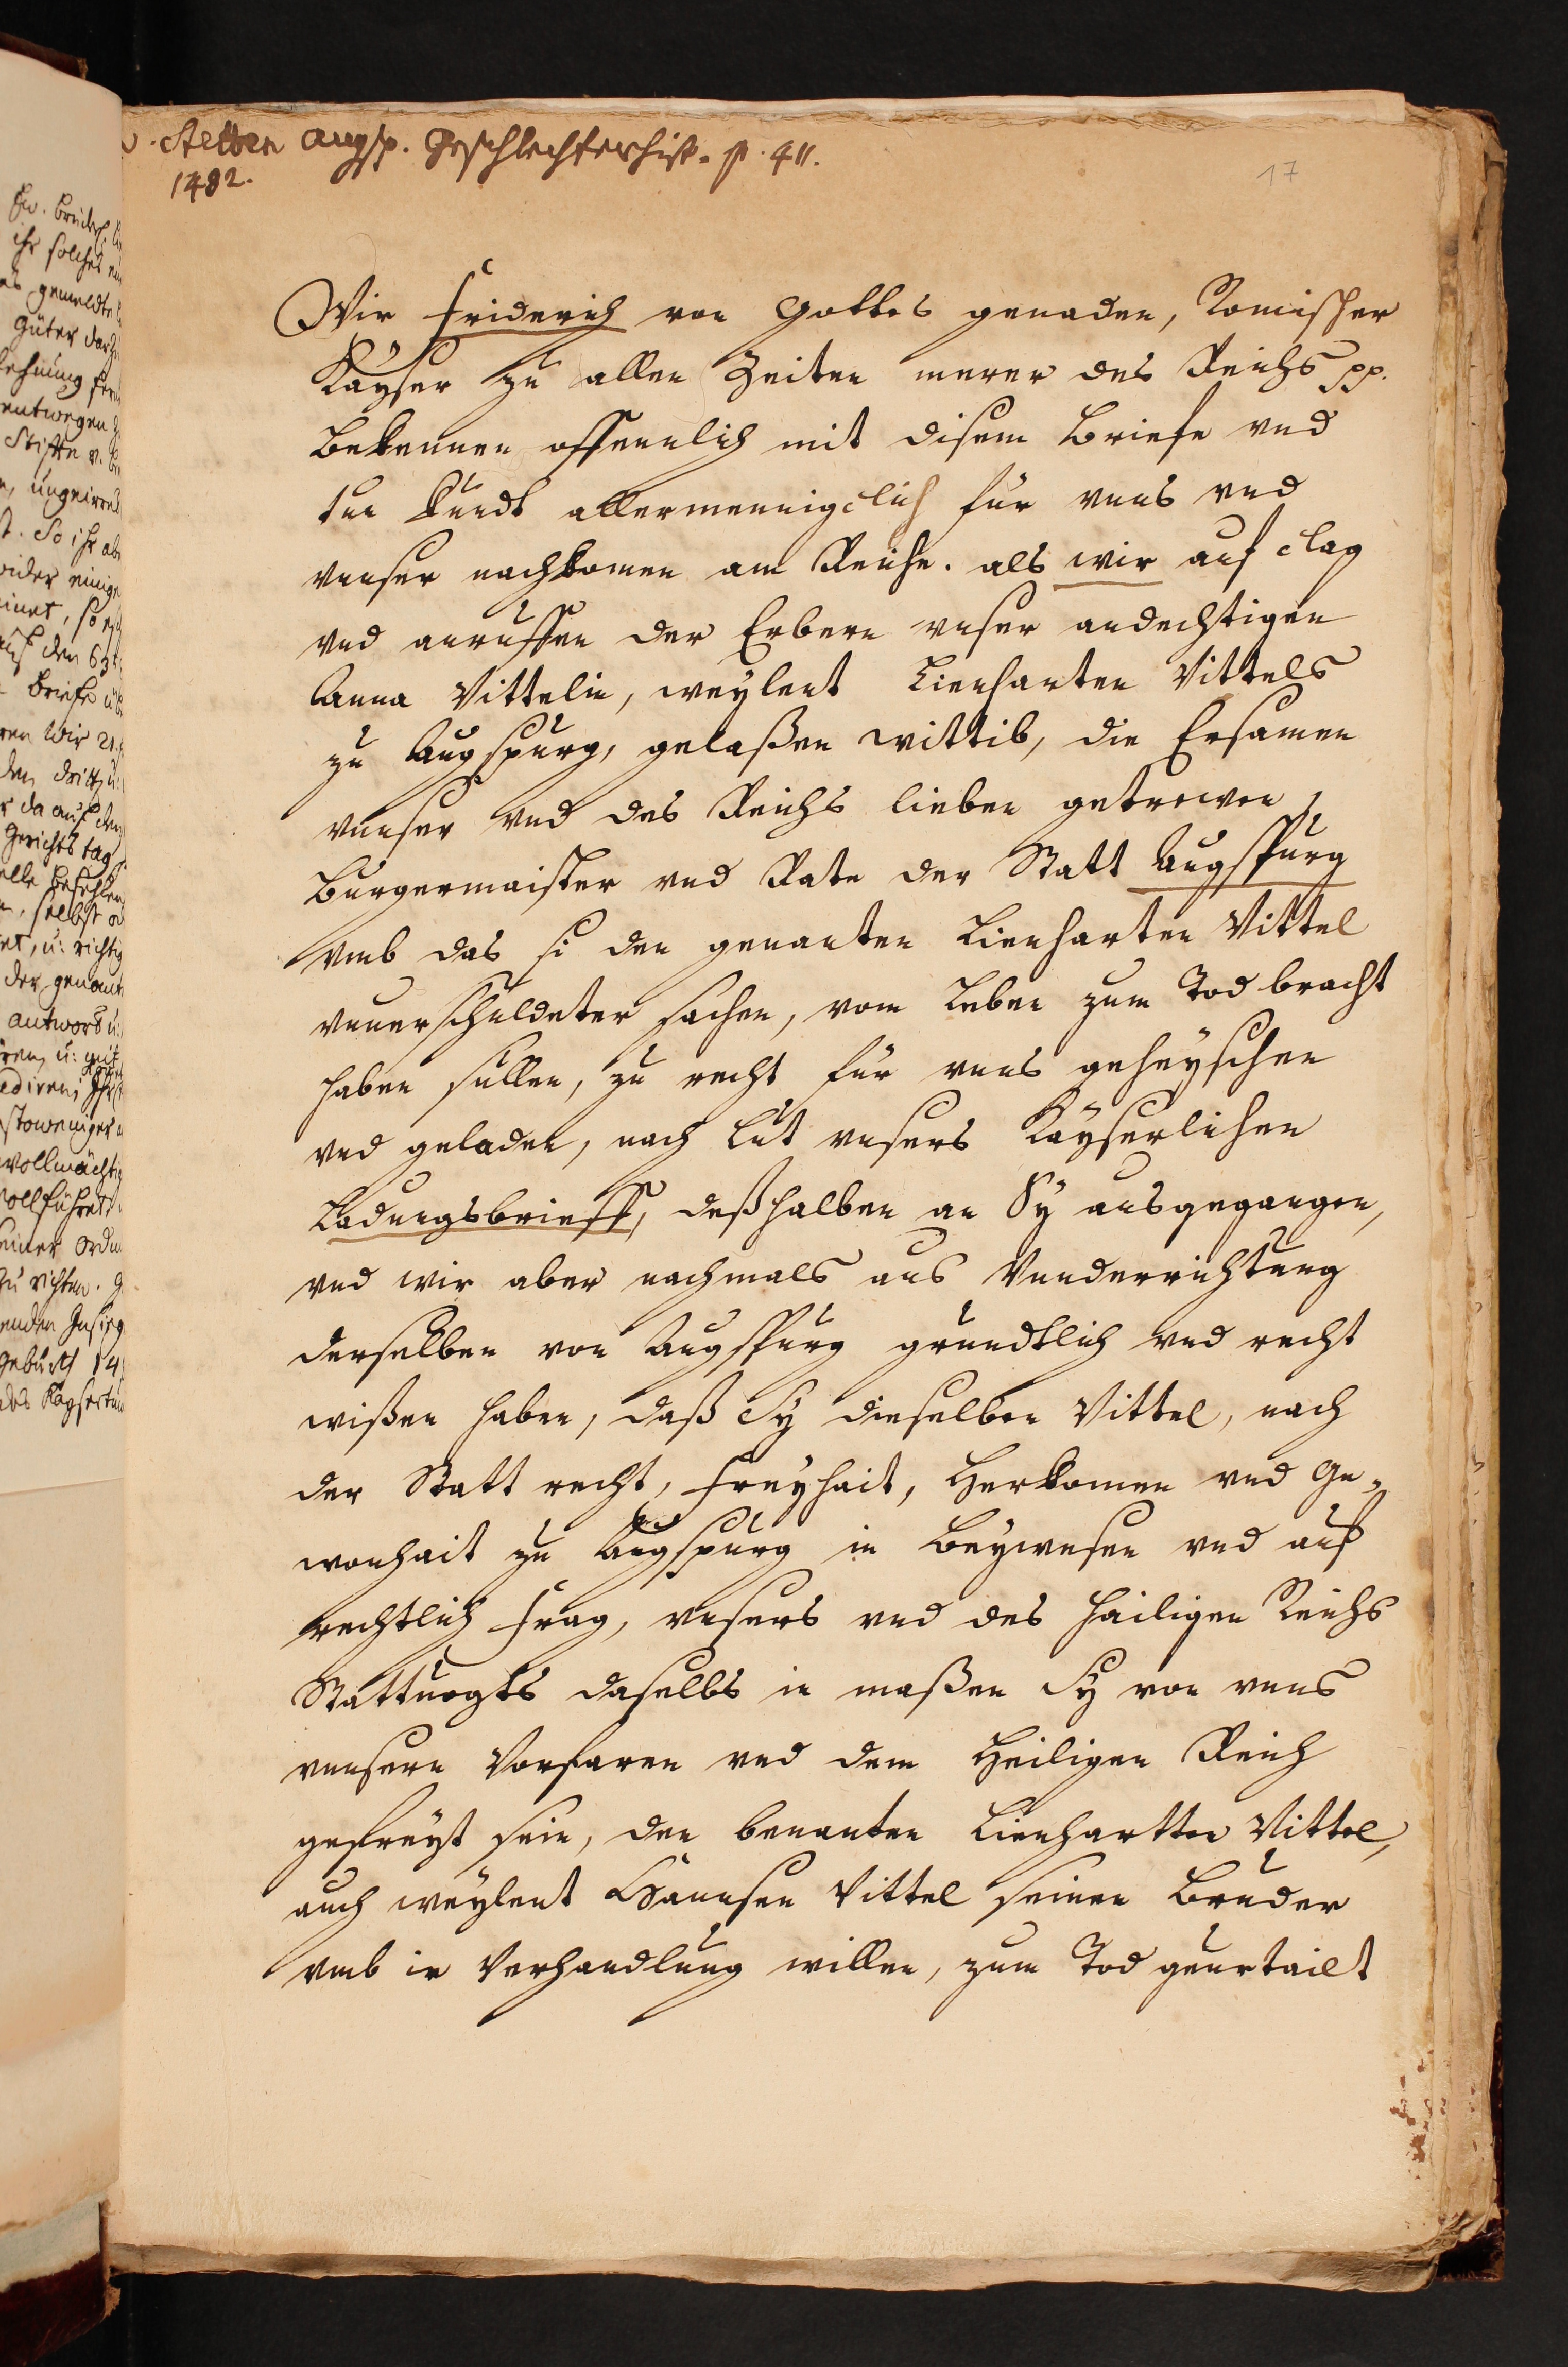 v. Stetten Augsp. Geschlechterhist. p. 411.
1482.
17
Wir Friderich von Gottes genaden, Romischer
Kayser zu allen Zeiten merer des Reichs pp.
bekennen offennlich mit disem Briefe vnd
tun kundt allermennigclich für vnns vnd
vnnser nachkomen am Reiche. als wir auf clag
vnd anruffen der Erbern vnser andechtigen
Anna Vittelin, weylent Lienharten Vittels
zu Augspurg, gelaßen wittib, die Ersamen
vnnser vnd des Reichs lieben getrewen
Burgermaister vnd Rate der Statt Augspurg
vmb das si den genanten Lienharten Vittel
vnuerschuldeter sachen, vom Leben zum Tod bracht
haben sullen, zu recht für vnns geheyschen
vnd geladen, nach lut vnsers Kayserlichen
Ladungsbrieff, deßhalben an Sy ausgegangen,
vnd wir aber nachmals aus Vnnderrichtung
derselben von Augspurg grundtlich vnd recht
wißen haben, daß Sy dieselben Vittel, nach
der Statt recht, freyhait, Herkomen vnd Ge-
wonhait zu Augspurg in Beywesen vnd auf
rechtlich frag, vnsers vnd des hailigen Reichs
Stattuogts daselbs in maßen Sy von vnns
vnnsern Vorfaren vnd dem Heiligen Reich
gefreyt sein, den benanten Lienhartten Vittel,
auch weylent Hannsen Vittel seinen Bruder
vmb ir Verhandlung willen, zum Tod geurtailt